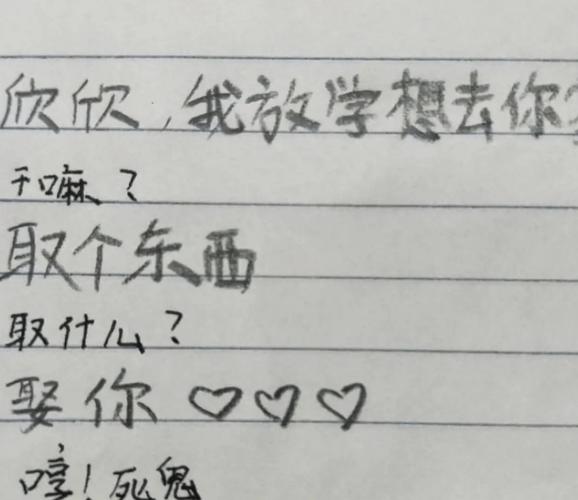 欣欣，我放学想去你
干嘛？
取个东西
取什么？
娶你♡♡♡
哼！死鬼